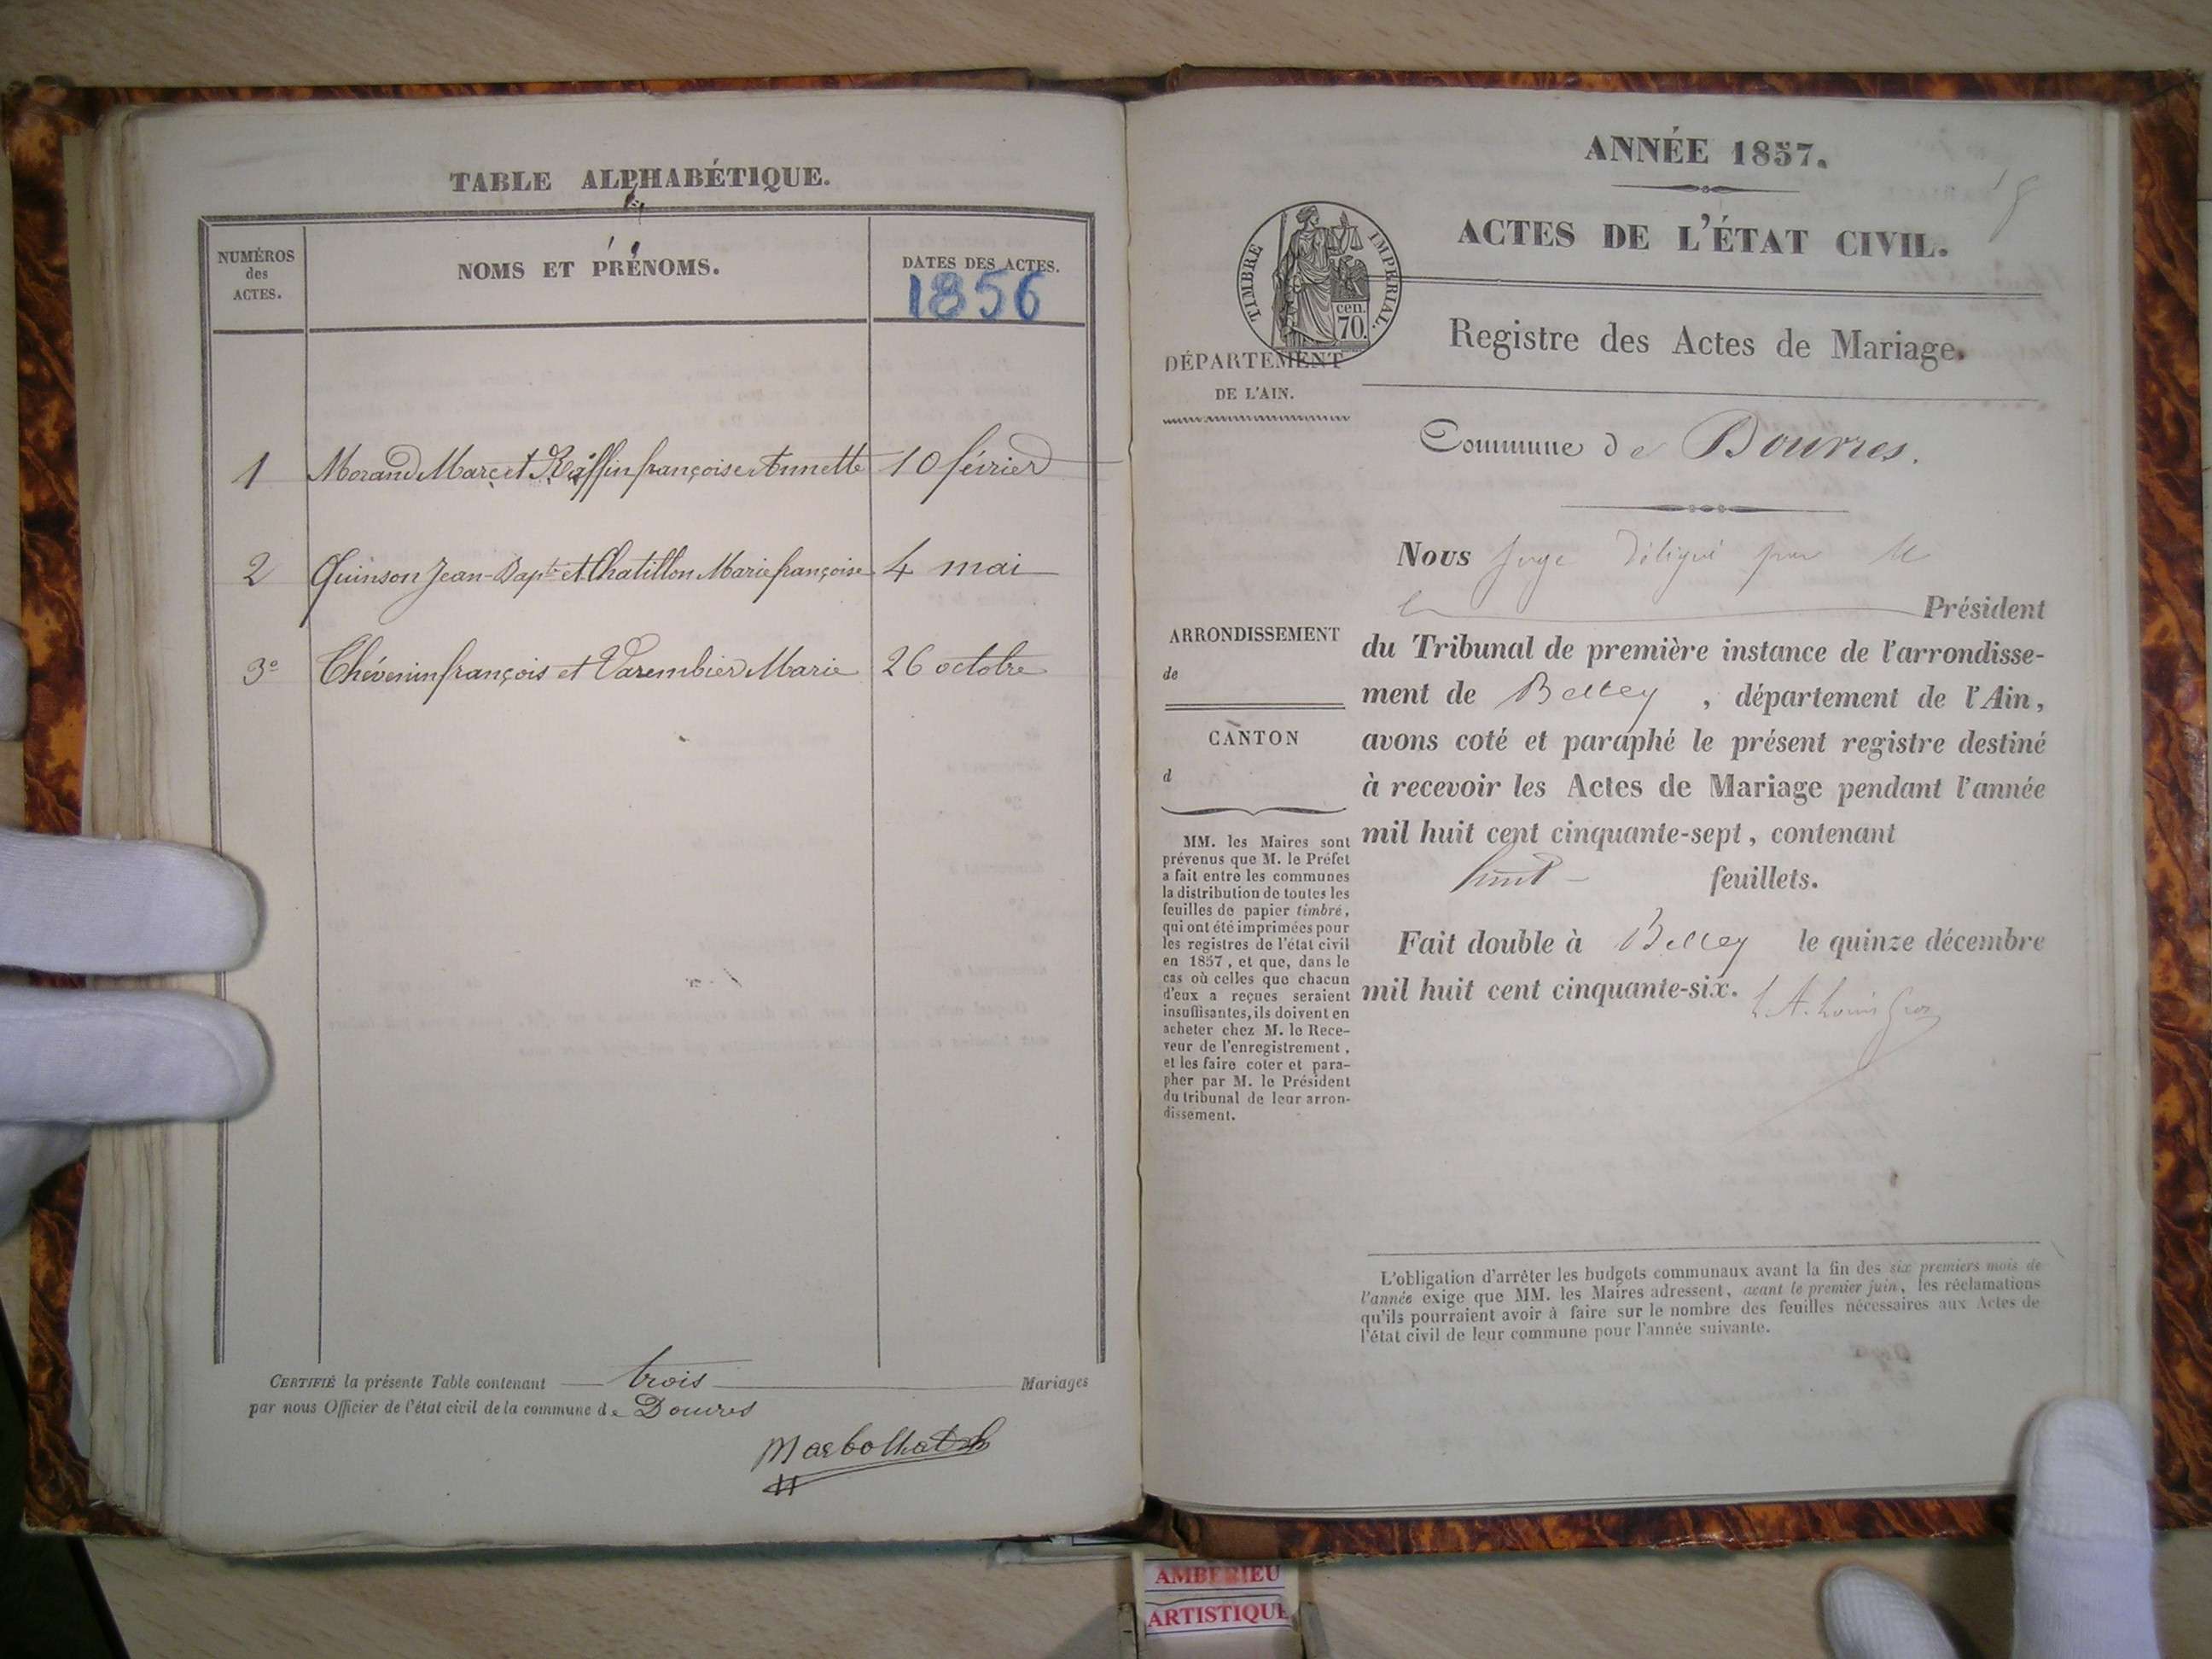 TABLE ALPHABÉTIQUE.
NUMÉROS
des
ACTES.
NOMS ET PRÉNOMS.
DATES DES ACTES.
1856
1 Morand Marc et Raffin françoise Annette 10 février
2 Quinson Jean-Bapte et Chatillon Marie françoise 4 mai
3º Thévenin françois et Varembier Marie 26 octobre
CERTIFIÉ la présente Table contenant trois Mariages
par nous Officier de l'état civil de la commune de Douvres
ANNÉE 1857.
ACTES DE L'ÉTAT CIVIL.
TIMBRE IMPÉRIAL.
cen.
70.
Registre des Actes de Mariage.
DÉPARTEMENT
DE L'AIN.
Commune de Douvres.
Nous Juge délégué par M
le Président
du Tribunal de première instance de l'arrondisse-
ment de Belley, département de l'Ain,
avons coté et paraphé le présent registre destiné
à recevoir les Actes de Mariage pendant l'année
mil huit cent cinquante-sept, contenant
huit feuillets.
Fait double à Belley le quinze décembre
mil huit cent cinquante-six.
ARRONDISSEMENT
de
CANTON
d
MM. les Maires sont
prévenus que M. le Préfet
a fait entre les communes
la distribution de toutes les
feuilles de papier timbré,
qui ont été imprimées pour
les registres de l'état civil
en 1857, et que, dans le
cas où celles que chacun
d'eux a reçues seraient
insuffisantes, ils doivent en
acheter chez M. le Rece-
veur de l'enregistrement,
et les faire coter et para-
pher par M. le Président
du tribunal de leur arron-
dissement.
L'obligation d'arrêter les budgets communaux avant la fin des six premiers mois de
l'année exige que MM. les Maires adressent, avant le premier juin, les réclamations
qu'ils pourraient avoir à faire sur le nombre des feuilles nécessaires aux Actes de
l'état civil de leur commune pour l'année suivante.
AMBERIEU
ARTISTIQUE